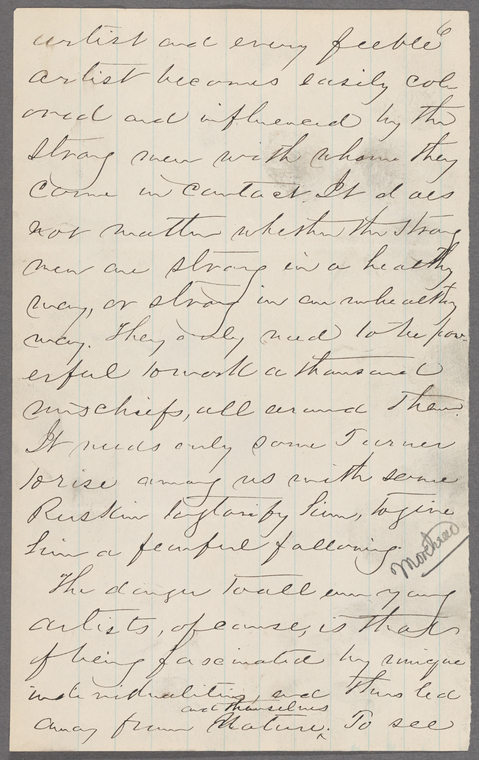 6
artist and every feeble
artist becomes easily col-
ored and influenced by the
strong men with whom they
come in contact. It does
not matter whether the strong
men are strong in a healthy
way, or strong in an unhealthy
way. They only need to be pow-
erful to work a thousand
mischiefs, all around them.
It needs only some Turner
to rise among us with some
Ruskin to glorify him, to give
him a fearful following.
The danger to all our young
artists, of course, is that
of being fascinated by unique
individualities, and thus led
and themselves
away from Nature. To see